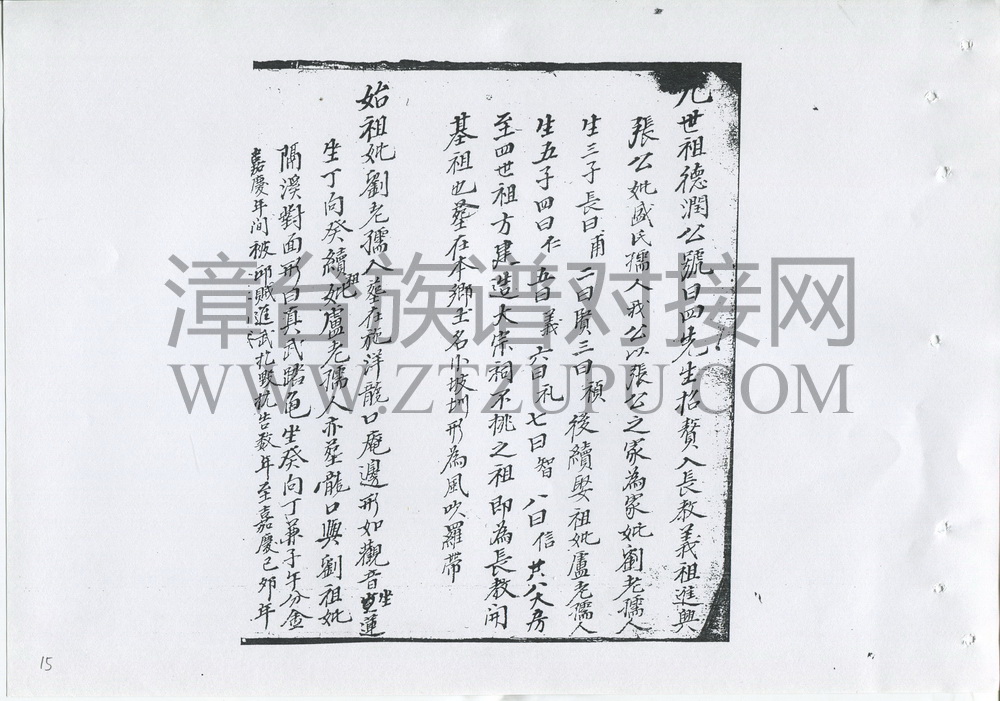 九世祖德潤公號曰四先生招贅入長教義祖進興
張公妣盛氏孺人我公以張公之家為家妣劉老孺人
生三子長曰甫二曰賢三曰禎後續娶祖妣盧老孺人
生五子四曰仁五曰義六曰礼七曰智八曰信共八大房
至四世祖方建造大宗祠不挑之祖即為長教開
基祖也塟在本鄉土名小坡圳形為風吹羅帶
始祖妣劉老孺人塟在施洋龍口庵邊形如觀音坐蓮
坐丁向癸續祖妣盧老孺人亦塟龍口與劉祖妣
隔溪對面形曰真武踏龟坐癸向丁兼子午分金
嘉慶年间被邱賊進武扎毀抗告数年至嘉慶己夘年
漳台族谱对接网
WWW.ZTZUPU.COM
15